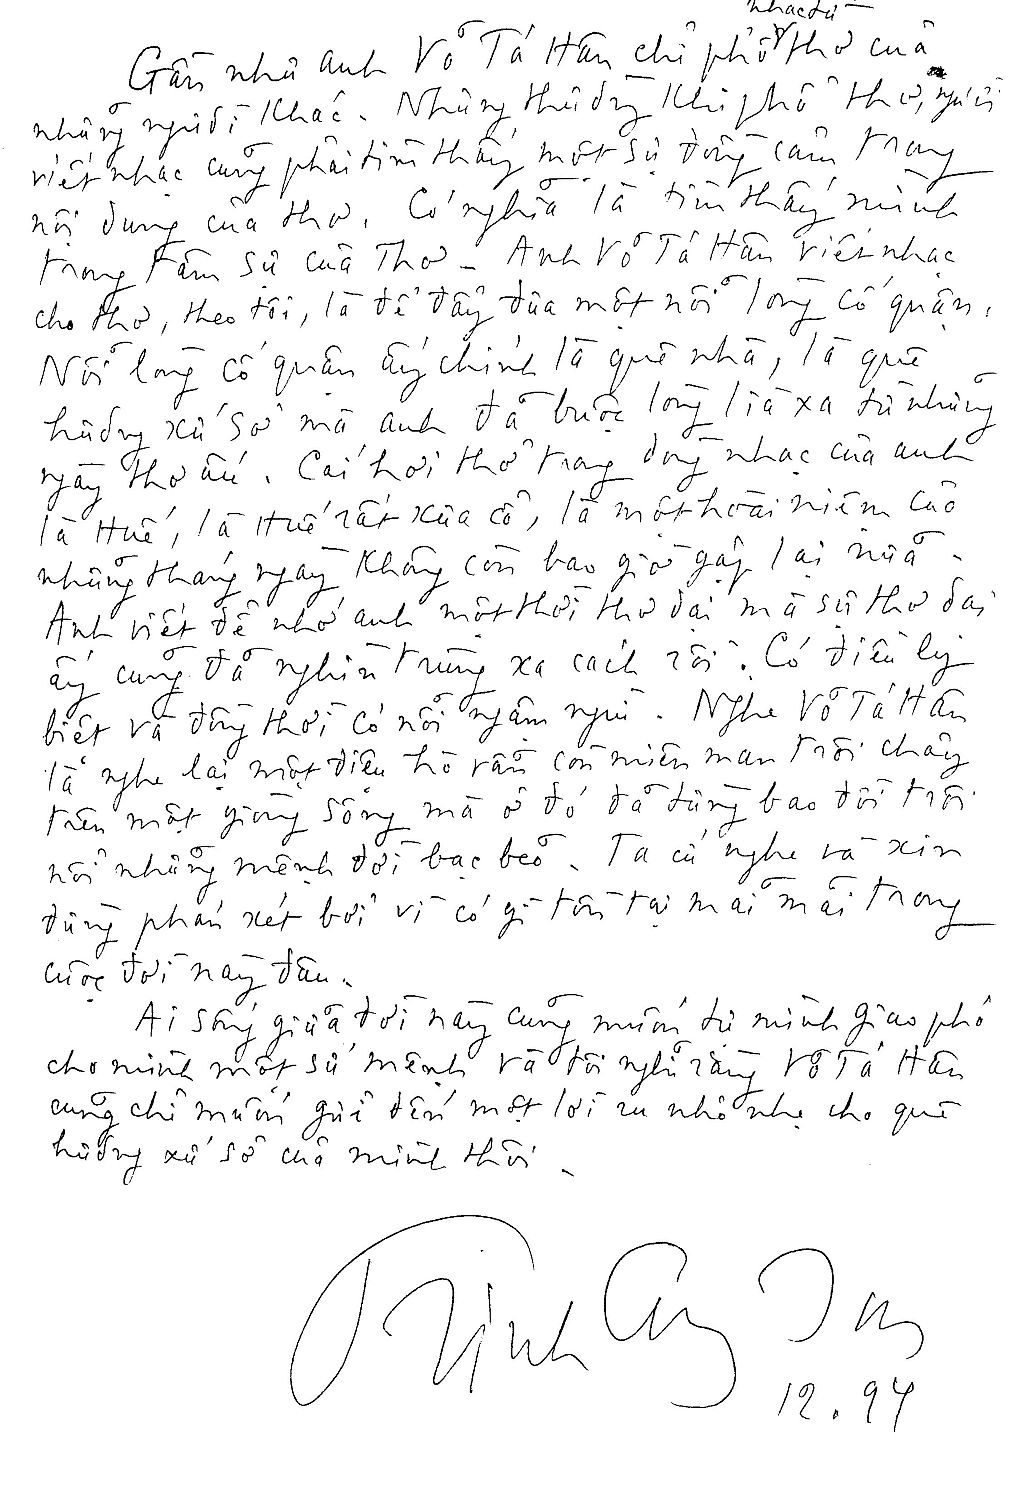 nhạc từ
Gần như anh Võ Tá Hân chỉ phổ thơ của
những người khác. Nhưng thường khi phổ thơ, người
viết nhạc cũng phải tìm thấy một sự đồng cảm trong
nội dung của thơ. Có nghĩa là tìm thấy mình
trong tâm sự của Thơ - Anh Võ Tá Hân viết nhạc
cho thơ, theo tôi, là để đẩy đưa một nỗi lòng cố quận.
Nỗi lòng cố quận ấy chính là quê nhà, là quê
hương xứ sở mà anh đã buộc lòng lìa xa từ những
ngày thơ ấu. Cái hơi thở trong dòng nhạc của anh
là Huế, là Huế rất xưa cũ, là một hoài niệm của
những tháng ngày không còn bao giờ gặp lại nữa.
Anh viết để nhớ anh một thời thơ dại mà sự thơ dại
ấy cũng đã nghìn trùng xa cách rồi. Có điều ly
biệt và đồng thời có nỗi ngậm ngùi. Nghe Võ Tá Hân
là nghe lại một điệu hò vẫn còn miên man trôi chảy
trên một giòng sông mà ở đó đã từng bao đời trôi
nổi những mệnh đời bạc bẽo. Ta cứ nghe và xin
đừng phán xét bởi vì có gì tồn tại mãi mãi trong
cuộc đời này đâu.
Ai sống giữa đời này cũng muốn tự mình giao phó
cho mình một sứ mệnh và tôi nghĩ rằng Võ Tá Hân
cũng chỉ muốn gửi đến một lời ru nho nhỏ cho quê
hương xứ sở của mình thôi.
Trịnh Công Sơn
12.94